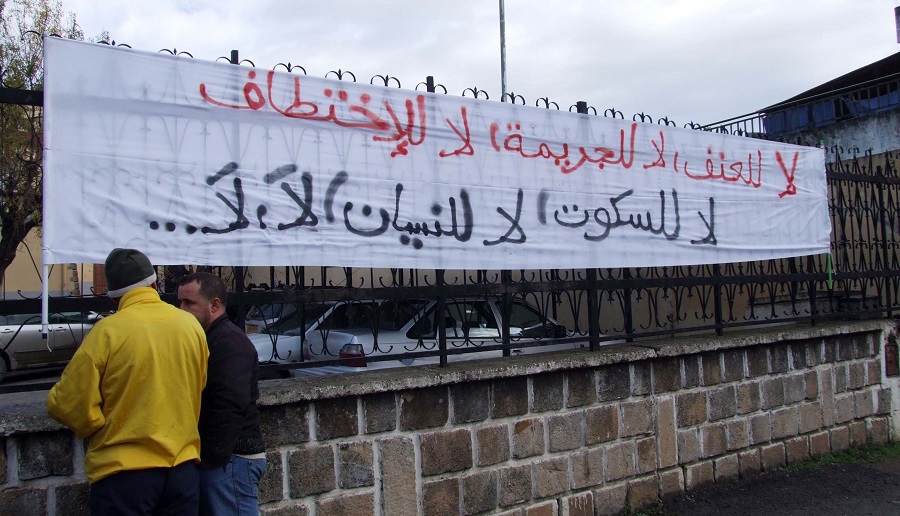 لا للعنف، لا للجريمة، لا للإختطاف
لا للسكوت، لا للنسيان، لاَ، لاَ، لاَ...